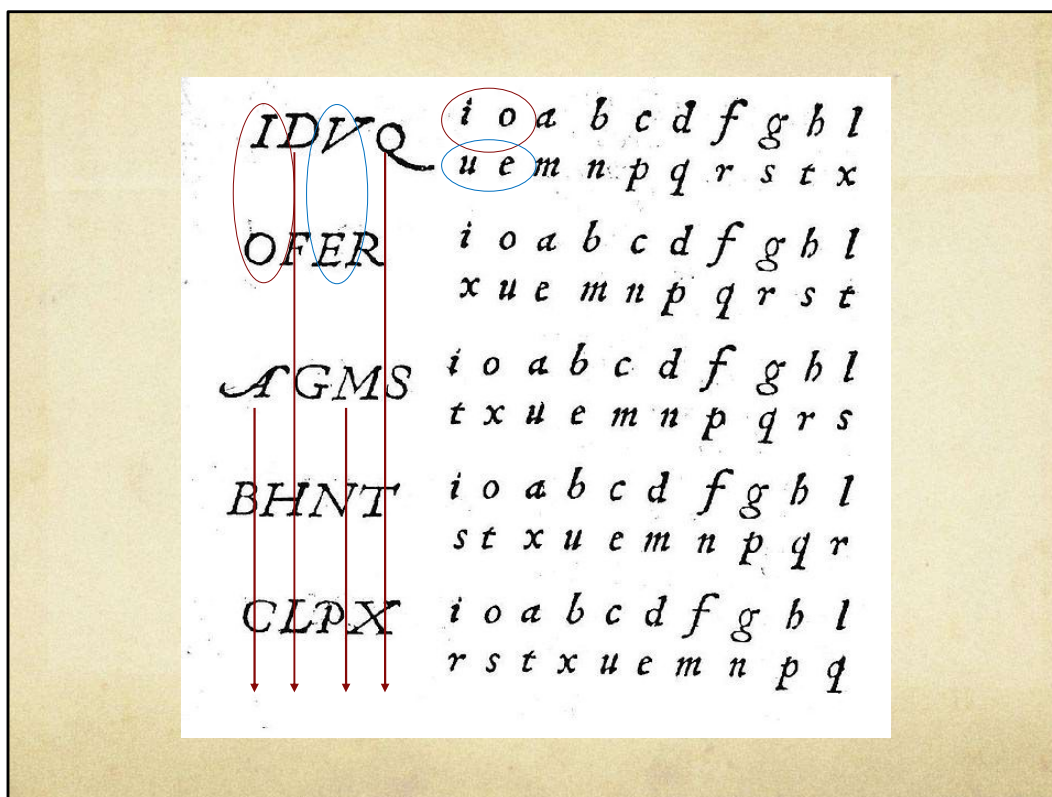 IDVQ i o a b c d f g h l
u e m n p q r s t x
OFER i o a b c d f g h l
x u e m n p q r s t
AGMS i o a b c d f g h l
t x u e m n p q r s
BHNT i o a b c d f g h l
s t x u e m n p q r
CLPX i o a b c d f g h l
r s t x u e m n p q